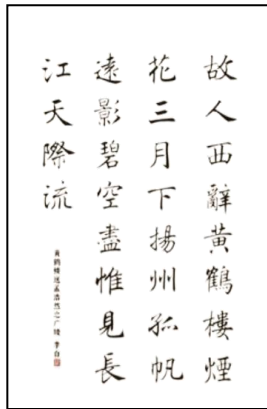 故人西辭黃鶴樓煙
花三月下揚州孤帆
遠影碧空盡惟見長
江天際流
黃鶴樓送孟浩然之廣陵 李白